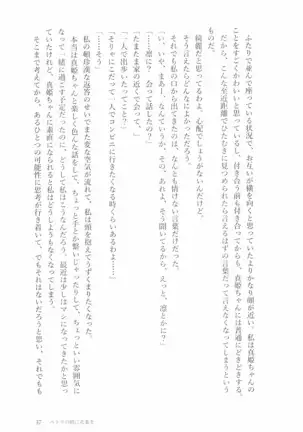 ふたりで並んで座っているせいで、お互いが横を向くと思っていたよりかなり顔が近い。私は真姫ちゃんの
ことをすごくかわいいと思っているし、付き合う前も付き合ってからも、真姫ちゃんには普通にどきどきする。
だから、こんな至近距離でひたむきに見つめられたら言えるはずの言葉だって言えなくなってしまうという
ものだ。
綺麗だと思ってるわよ、心配でしょうがないんだけど。
そう言えたらどんなによかっただろう。
それでも私の口から出てきたのは、なんとも情けない言葉だけだった。
「い、いや、まあー、なんていうか、その、あれよ、そう聞いてるから、えっと、凛とかに？」
「……凛に？　会って話したの？」
「たまたま家の近くで会って」
「……一人で出歩いてたってこと？」
「そりゃこの時期に一人でコンビニに行きたくなる時くらいあるわよ……」
「……そう」
私の頓珍漢な返答のせいでまた変な空気が流れて、私は頭を抱えてうずくまりたくなった。
本当は真姫ちゃんと楽しく色んな話をして、ちょっと手とか繋いじゃったりして、ちょっといい雰囲気に
なって一緒に過ごす予定だったのに、どうして私はこうなんだろう。最近は少しはマシになってきたかと思っ
ていたけれど、真姫ちゃんに素直になられると私はどうしていいかわからなくなってしまう。
そこまで考えてから、あるひとつの可能性に思考が行き着いて、でもそれはないだろうと思い、それでも
37